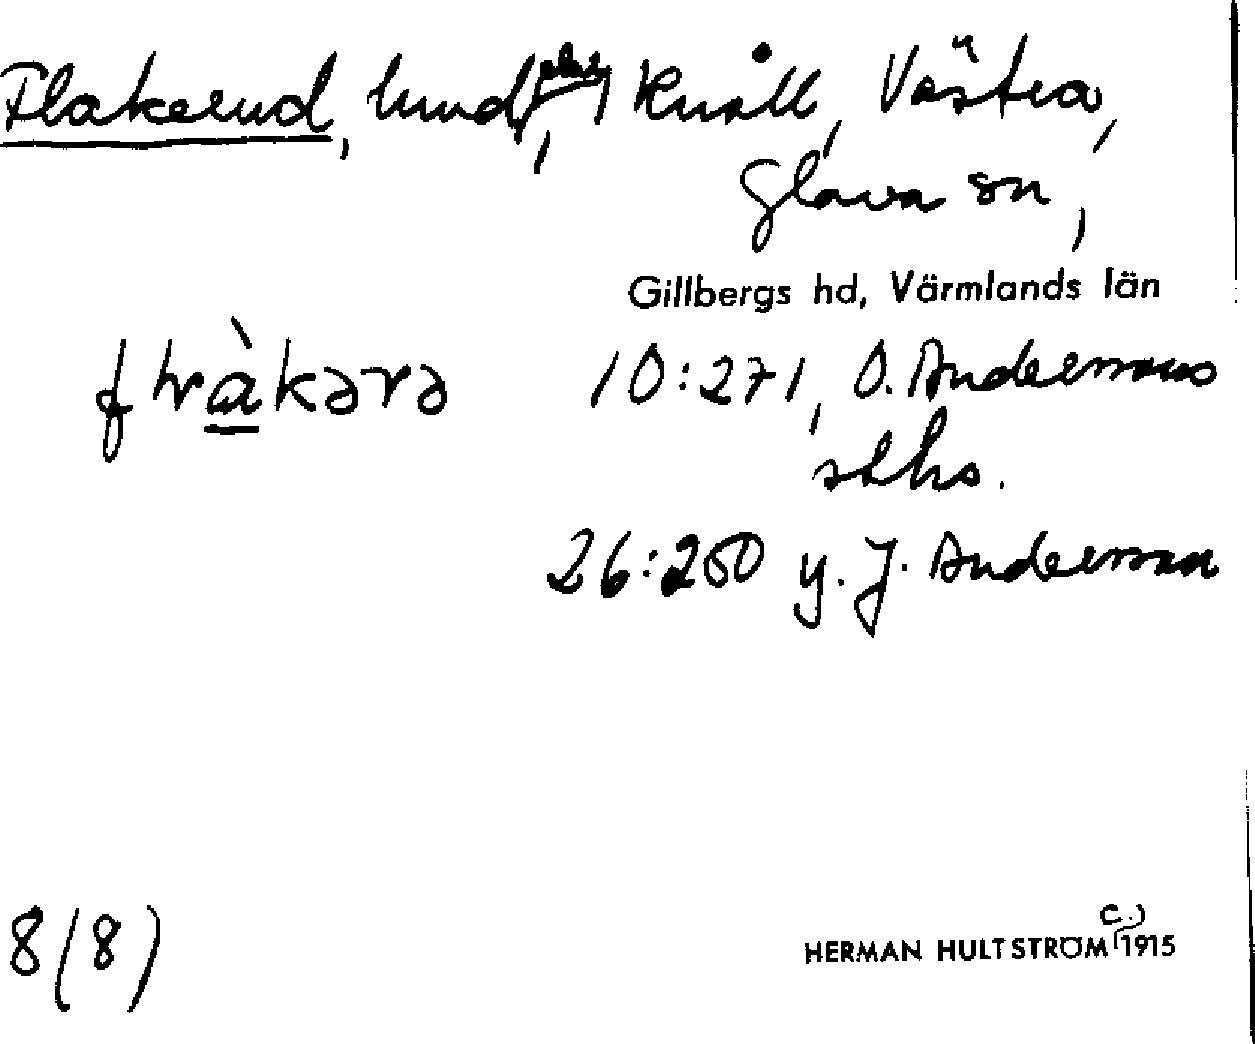 Flakerud, lund, Knåll, Västra,
Glava sn,
Gillbergs hd, Värmlands län
10:271, O. Andersson
26:260 y. J. Andersson
8(8)
HERMAN HULTSTRÖM (c.) 1915